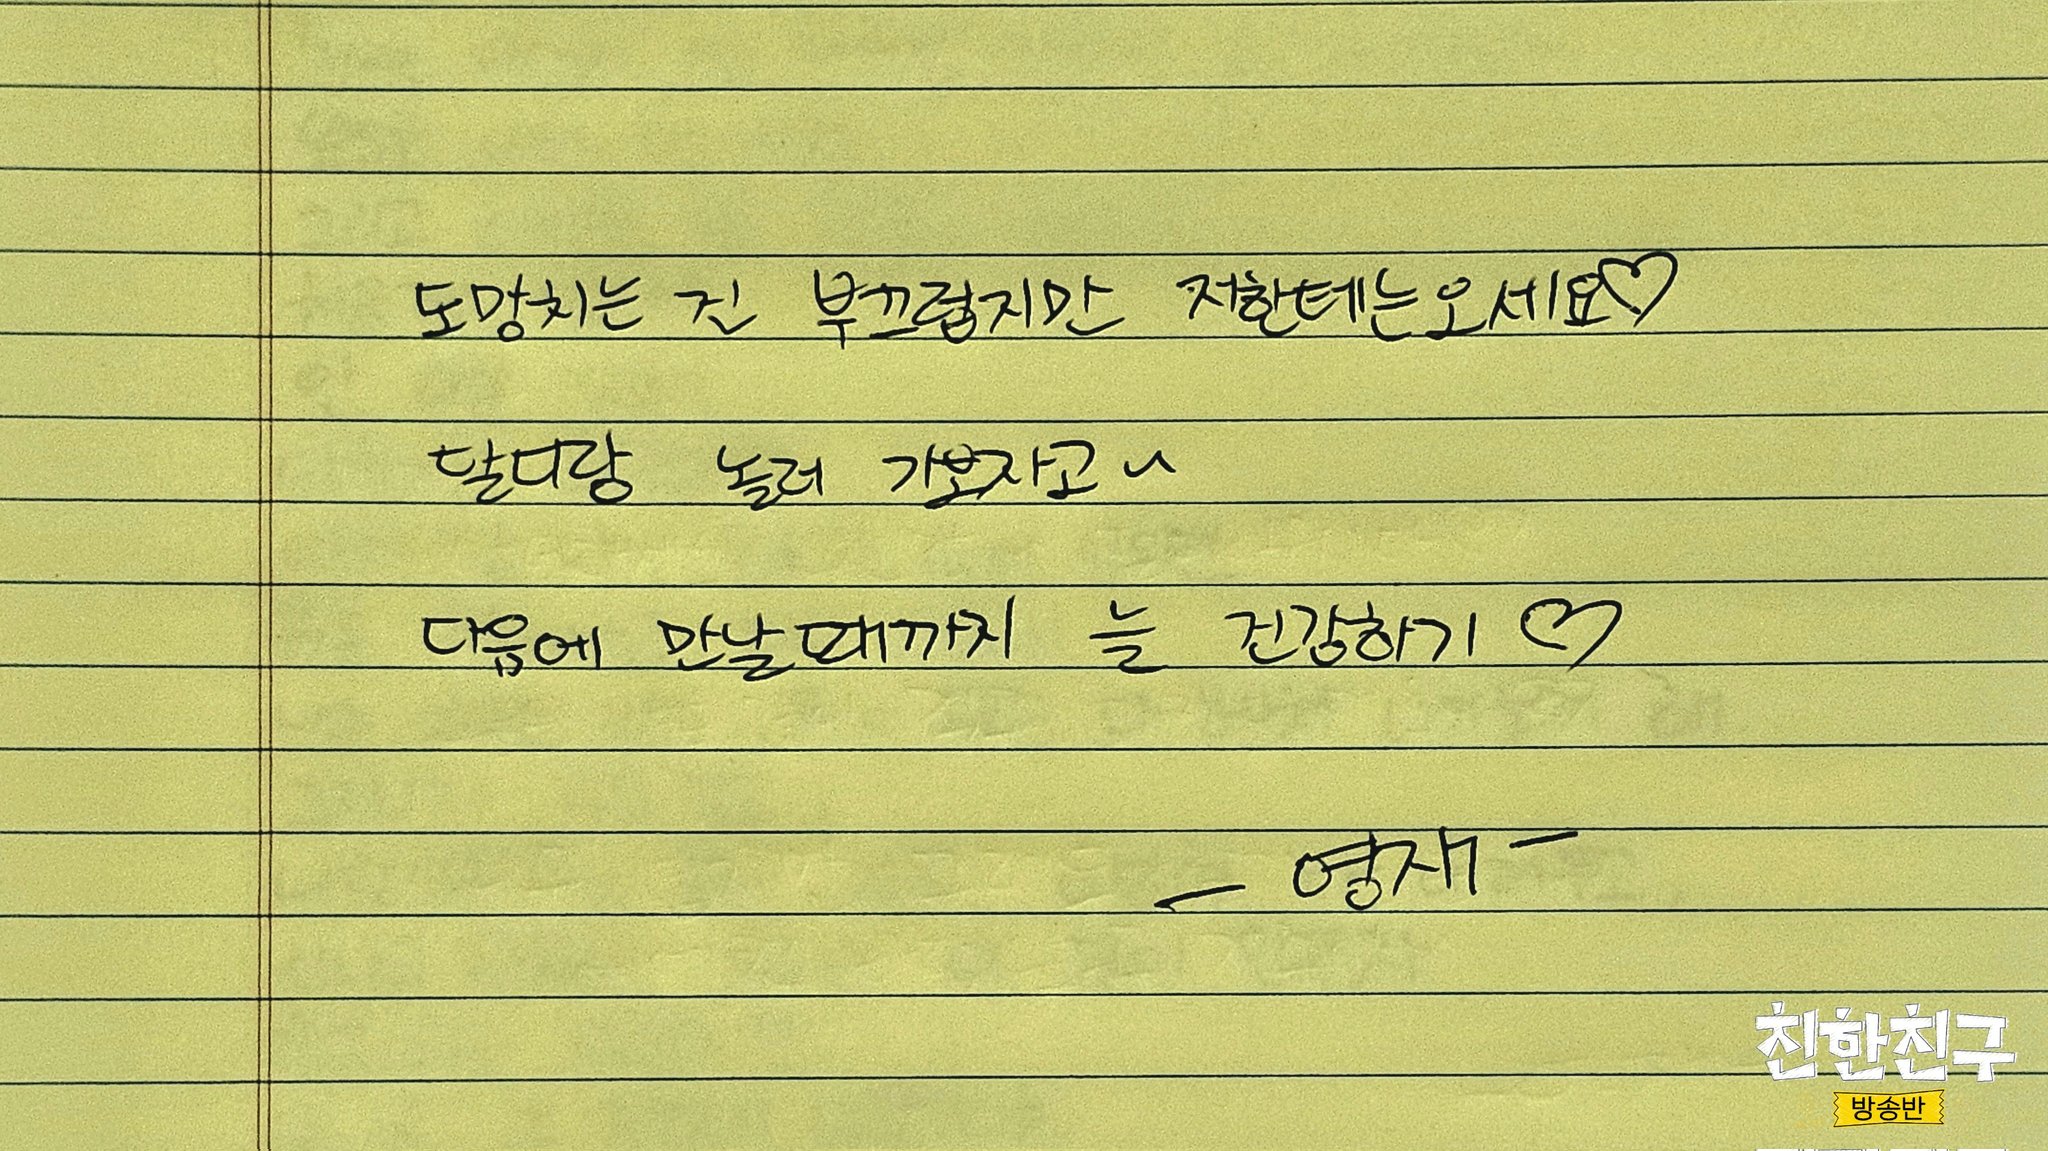 도망치는 건 부끄럽지만 저한테는오세요♡
달디랑 놀러 가보자고~
다음에 만날때까지 늘 건강하기 ♡
- 영재 -
친한친구
방송반